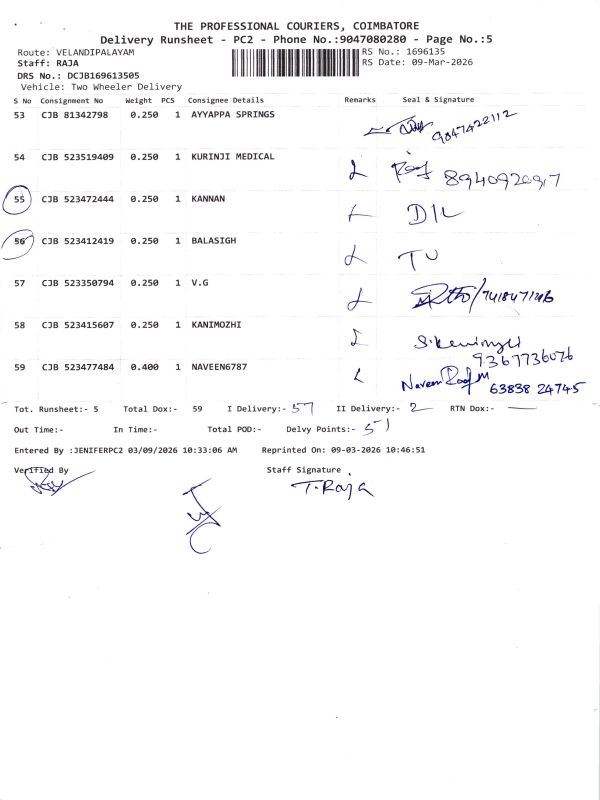 THE PROFESSIONAL COURIERS, COIMBATORE
Delivery Runsheet - PC2 - Phone No.:9047080280 - Page No.:5
Route: VELANDIPALAYAM RS No.: 1696135
Staff: RAJA RS Date: 09-Mar-2026
DRS No.: DCJB169613505
Vehicle: Two Wheeler Delivery
S No Consignment No Weight PCS Consignee Details Remarks Seal & Signature
53 CJB 81342798 0.250 1 AYYAPPA SPRINGS 9847422112
54 CJB 523519409 0.250 1 KURINJI MEDICAL
55 CJB 523472444 0.250 1 KANNAN D/L
56 CJB 523412419 0.250 1 BALASIGH
57 CJB 523350794 0.250 1 V.G
58 CJB 523415607 0.250 1 KANIMOZHI 9367736076
59 CJB 523477484 0.400 1 NAVEEN6787 Naveen 63838 24745
Tot. Runsheet:- 5 Total Dox:- 59 I Delivery:- 57 II Delivery:- 2 RTN Dox:- —
Out Time:- In Time:- Total POD:- Delvy Points:- 51
Entered By :JENIFERPC2 03/09/2026 10:33:06 AM Reprinted On: 09-03-2026 10:46:51
Verified By Staff Signature
T. Raja